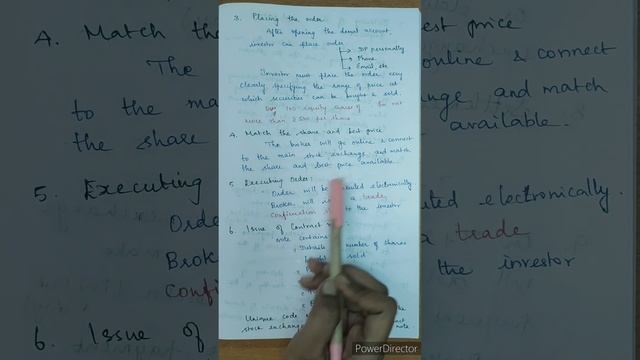 3. Placing the order
After opening the demat account
investor can place order
DP personally
Phone
Email, etc
Investor must place the order very
clearly specifying the range of price at
which securities can be bought & sold.
Buy 100 equity shares of for not
more than ₹500 per share
4. Match the share and best price
The broker will go online & connect
to the main stock exchange and match
the share and best price available.
5. Executing Order:
Order will be electronically
Broker will a trade
confirmation to the investor
6. Issue of Contract
note contains
Details number of shares
sold
Unique code the
stock exchange note
PowerDirector